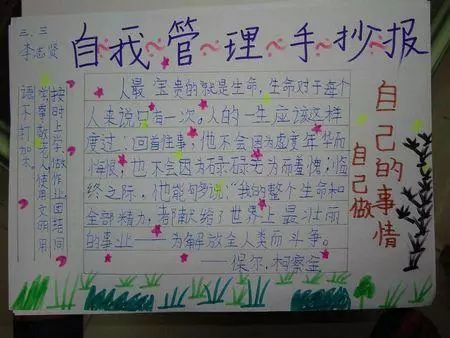 三.三
李志贤
自我管理手抄报
人最宝贵的就是生命,生命对于每个
人来说只有一次。人的一生应该这样
度过:回首往事,他不会因为虚度年华而
悔恨,也不会因为碌碌无为而羞愧;临
终之际,他能够说:"我的整个生命和
全部精力,都献给了世界上最壮丽
的事业——为解放全人类而斗争。
——保尔.柯察金
按时上学做作业团结同
学尊敬老人使用文明用
语不打架
自己的事情
自己做